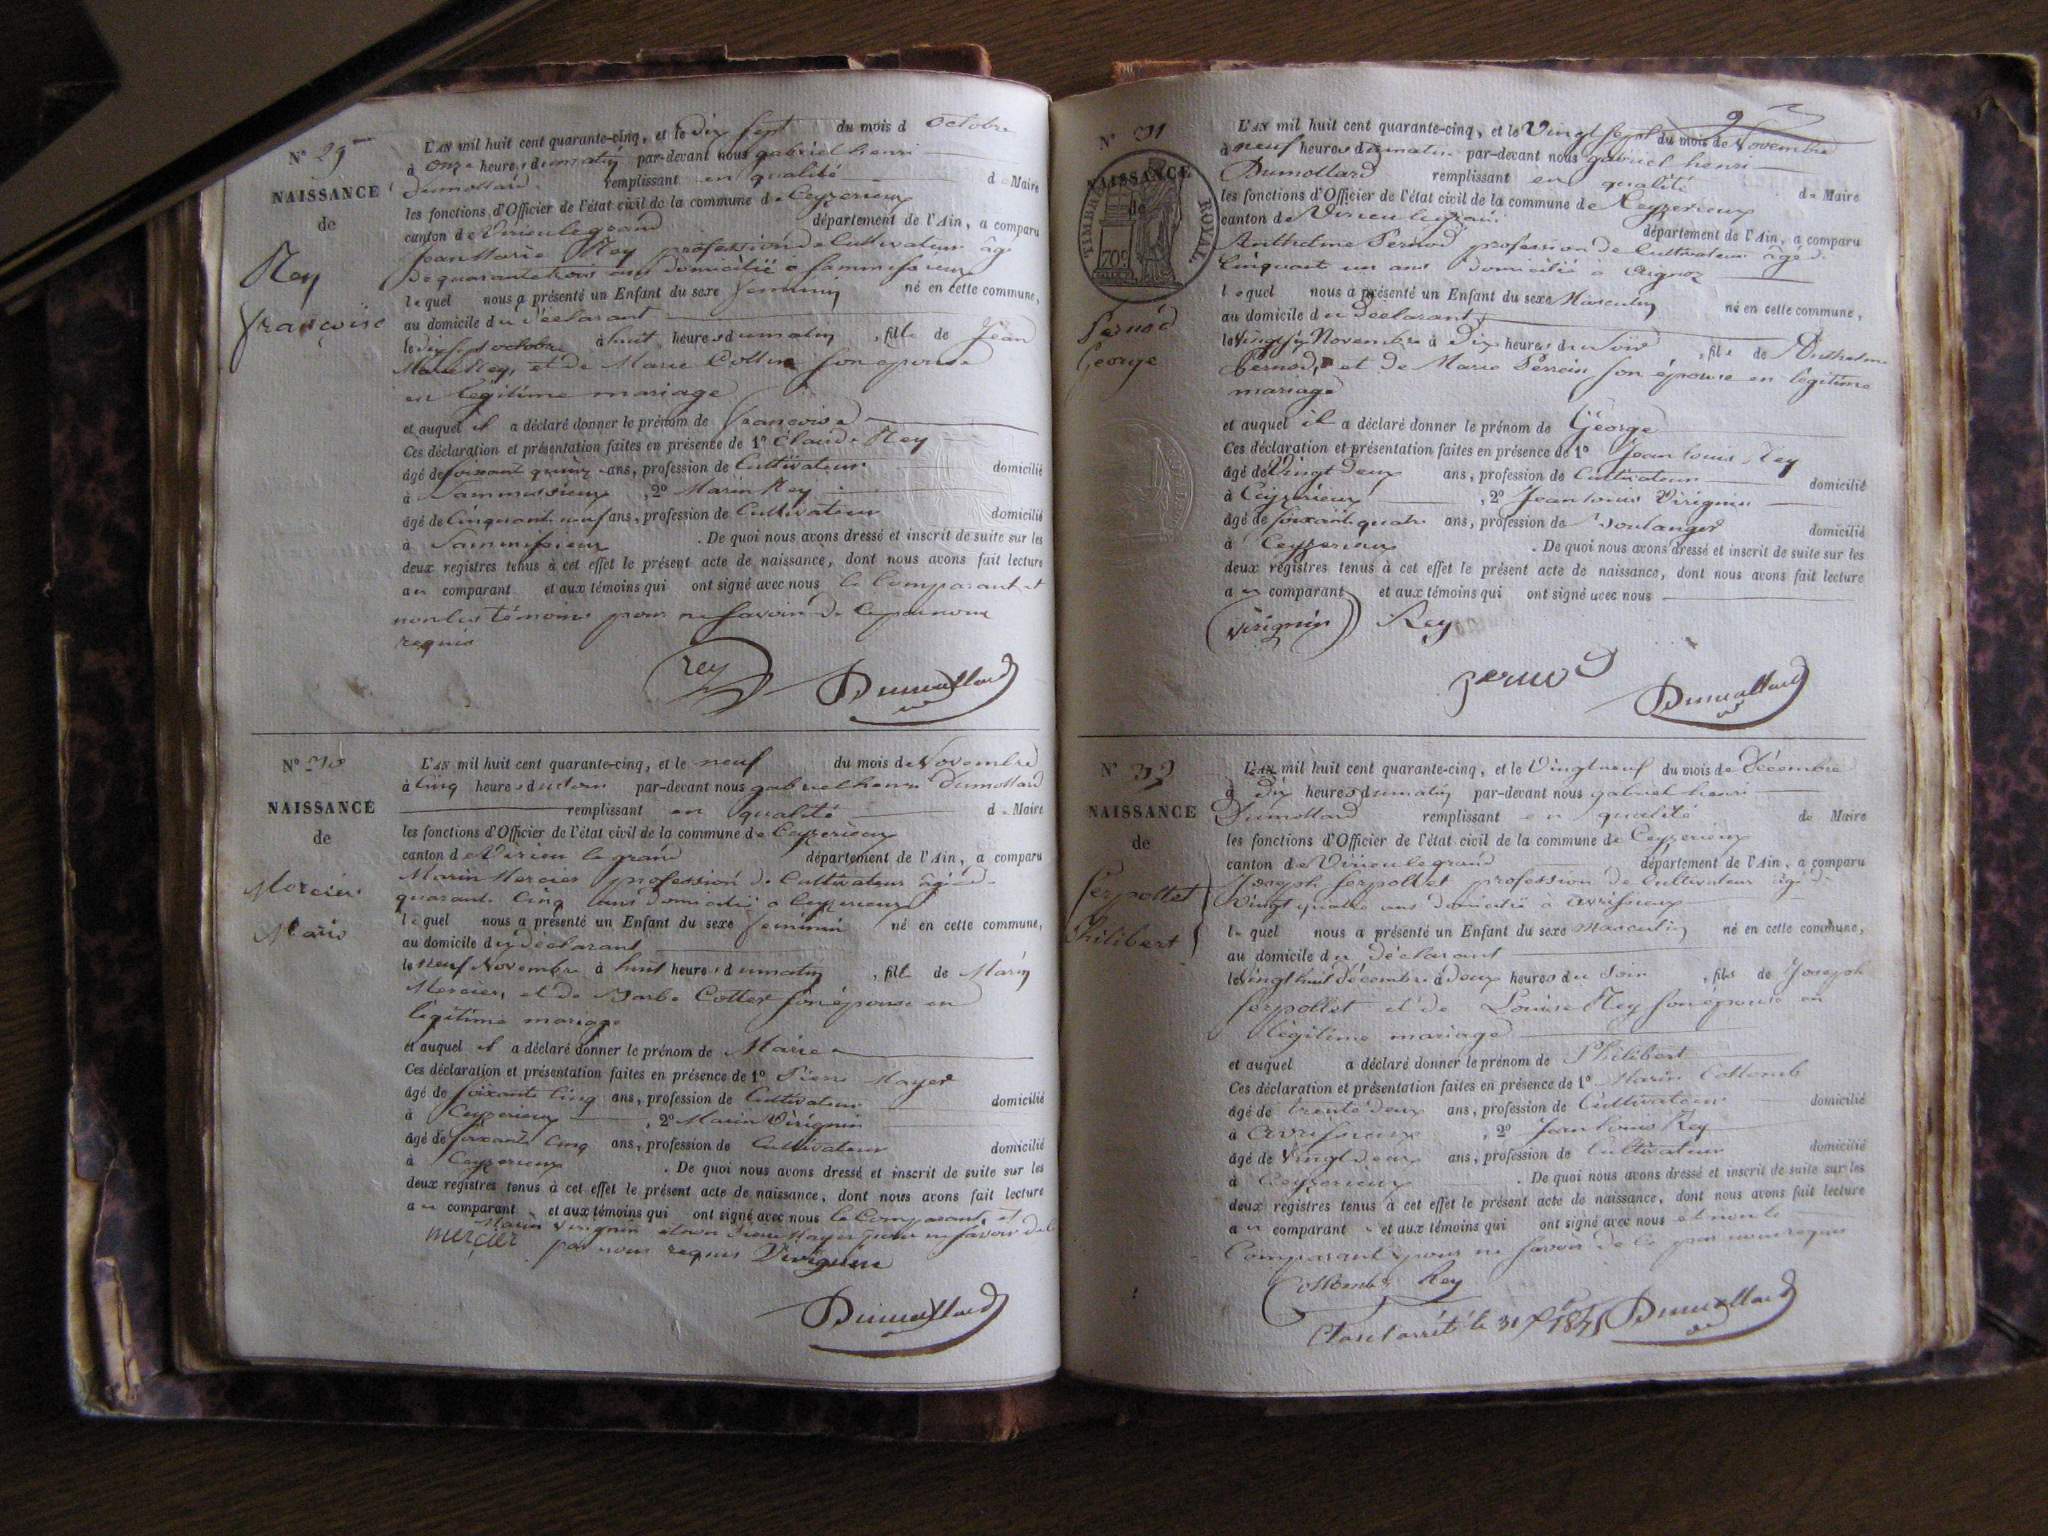 N° 29
NAISSANCE
de
Rey
françoise
L'AN mil huit cent quarante-cinq, et le dix sept du mois d octobre
à onze heures du matin par-devant nous gabriel henri
Dumollard remplissant en qualité d Maire
les fonctions d'Officier de l'état civil de la commune de Ceyzerieux
canton de Virieu le grand département de l'Ain, a comparu
Jean Marie Rey profession de Cultivateur âgé
de quarante trois ans domicilié a Sammissieux
lequel nous a présenté un Enfant du sexe feminin né en cette commune,
au domicile du déclarant
le dix sept octobre à huit heures du matin, fille de Jean
Marie Rey, et de Marie Collin son epouse
en légitime mariage
et auquel il a déclaré donner le prénom de françoise
Ces déclaration et présentation faites en présence de 1° Claude Rey
âgé de soixant quinze ans, profession de Cultivateur domicilié
à Sammissieux, 2° Marin Rey
âgé de Cinquant neuf ans, profession de Cultivateur domicilié
à Sammissieux. De quoi nous avons dressé et inscrit de suite sur les
deux registres tenus à cet effet le présent acte de naissance, dont nous avons fait lecture
au comparant et aux témoins qui ont signé avec nous le Comparant et
non les témoins pour ne savoir de Ce par nous
requis
rey Dumollard
N° 30
NAISSANCE
de
Mercier
Marie
L'AN mil huit cent quarante-cinq, et le neuf du mois de Novembre
à Cinq heures du soir par-devant nous gabriel henri Dumollard
remplissant en qualité de Maire
les fonctions d'Officier de l'état civil de la commune de Ceyzerieux
canton de Virieu le grand département de l'Ain, a comparu
Marin Mercier profession de Cultivateur âgé de
quarante Cinq ans domicilié a Ceyzerieux
lequel nous a présenté un Enfant du sexe feminin né en cette commune,
au domicile du déclarant
le neuf Novembre à huit heures du matin, fille de Marin
Mercier, et de Barbe Cottet son épouse en
légitime mariage
et auquel il a déclaré donner le prénom de Marie
Ces déclaration et présentation faites en présence de 1° Pierre Mayet
âgé de soixante Cinq ans, profession de Cultivateur domicilié
à Ceyzerieux, 2° Marin Virignin
âgé de soixante Cinq ans, profession de Cultivateur domicilié
à Ceyzerieux. De quoi nous avons dressé et inscrit de suite sur les
deux registres tenus à cet effet le présent acte de naissance, dont nous avons fait lecture
au comparant et aux témoins qui ont signé avec nous le Comparant et
Marin Virignin et non Pierre Mayet pour ne savoir de Ce
mercier par nous requis Virignin
Dumollard
9
N° 31
NAISSANCE
de
TIMBRE ROYAL
Pernod
George
L'AN mil huit cent quarante-cinq, et le Vingt sept du mois de Novembre
à neuf heures du matin par-devant nous gabriel henri
Dumollard remplissant en qualité de Maire
les fonctions d'Officier de l'état civil de la commune de Ceyzerieux
canton de Virieu le grand département de l'Ain, a comparu
Anthelme Pernod profession de Cultivateur âgé de
Cinquant un ans domicilié a Aignoz
lequel nous a présenté un Enfant du sexe Masculin né en cette commune,
au domicile du déclarant
le Vingt six Novembre à Dix heures du Soir, fils de Anthelme
Pernod, et de Marie Perrein son épouse en légitime
mariage
et auquel il a déclaré donner le prénom de George
Ces déclaration et présentation faites en présence de 1° Jean louis Rey
âgé de Vingt deux ans, profession de Cultivateur domicilié
à Ceyzerieux, 2° Jean louis Virignin
âgé de soixant quatre ans, profession de Boulanger domicilié
à Ceyzerieux. De quoi nous avons dressé et inscrit de suite sur les
deux registres tenus à cet effet le présent acte de naissance, dont nous avons fait lecture
au comparant et aux témoins qui ont signé avec nous
Virignin Rey
pernod Dumollard
N° 32
NAISSANCE
de
Serpollet
Philibert
L'AN mil huit cent quarante-cinq, et le Vingt neuf du mois de Décembre
à Dix heures du matin par-devant nous gabriel henri
Dumollard remplissant en qualité de Maire
les fonctions d'Officier de l'état civil de la commune de Ceyzerieux
canton de Virieu le grand département de l'Ain, a comparu
Joseph Serpollet profession de Cultivateur âgé de
Vingt quatre ans domicilié a avrissieux
lequel nous a présenté un Enfant du sexe masculin né en cette commune,
au domicile du déclarant
le Vingt huit décembre à deux heures du Soir, fils de Joseph
Serpollet et de Louise Rey son épouse en
légitime mariage
et auquel a déclaré donner le prénom de Philibert
Ces déclaration et présentation faites en présence de 1° Marin Collomb
âgé de trente deux ans, profession de Cultivateur domicilié
à avrissieux, 2° Jean louis Rey
âgé de Vingt deux ans, profession de Cultivateur domicilié
à Ceyzerieux. De quoi nous avons dressé et inscrit de suite sur les
deux registres tenus à cet effet le présent acte de naissance, dont nous avons fait lecture
au comparant et aux témoins qui ont signé avec nous et non le
Comparant pour ne savoir de Ce par nous requis
Collomb Rey
Clos et arrêté le 31 1845 Dumollard